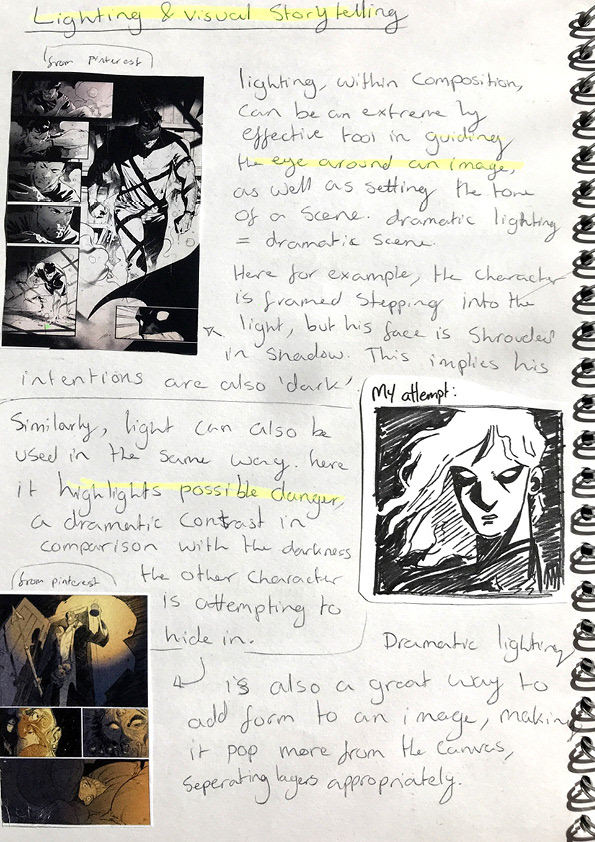 Lighting & visual Storytelling
from pinterest
lighting, within composition,
can be an extremely
effective tool in guiding
the eye around an image,
as well as setting the tone
of a scene. dramatic lighting
= dramatic scene.
Here for example, the character
is framed stepping into the
light, but his face is shrouded
in shadow. This implies his
intentions are also 'dark'
My attempt:
Similarly, light can also be
used in the same way. here
it highlights possible danger,
a dramatic contrast in
comparison with the darkness
the other character
is attempting to
hide in.
from pinterest
Dramatic lighting
is also a great way to
add form to an image, making
it pop more from the canvas,
seperating layers appropriately.